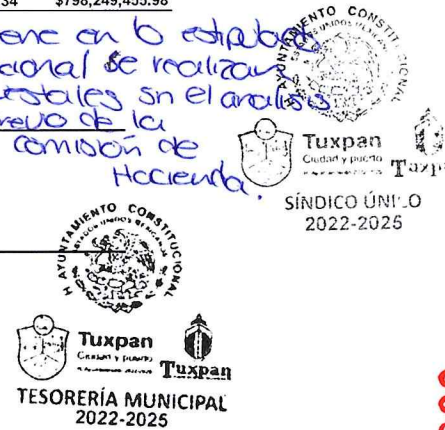 34 $798,249,453.98
ene en lo estipulado
cional se realizan
estales sn el analisis
previo de la
comisión de
Hacienda.
H AYUNTAMIENTO CONSTITUCIONAL
ESTADOS UNIDOS MEXICANOS
Tuxpan
Ciudad y puerto
Tuxp
SÍNDICO ÚNICO
2022-2025
H AYUNTAMIENTO CONSTITUCIONAL
ESTADOS UNIDOS MEXICANOS
Tuxpan
Ciudad y puerto
Tuxpan
TESORERÍA MUNICIPAL
2022-2025